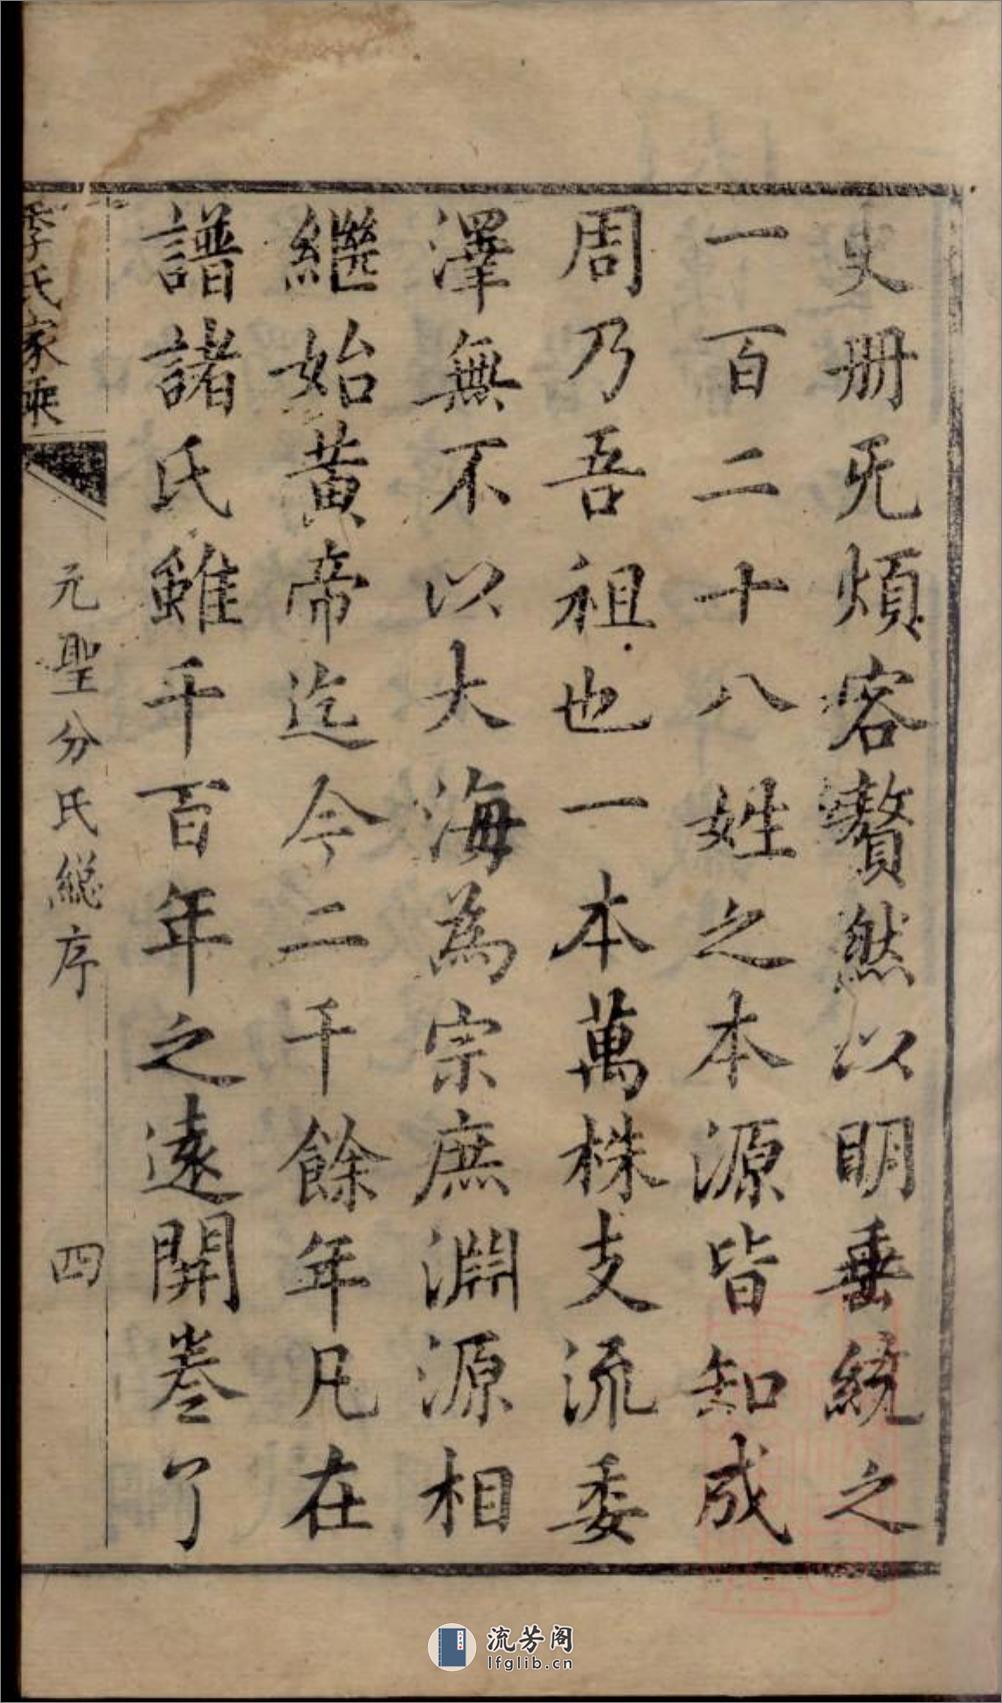 史册旡煩容贅然以明垂統之
一百二十八姓之本源皆知成
周乃吾祖也一本萬株支流委
澤無不以大海為宗庶淵源相
繼始黃帝迄今二千餘年凡在
譜諸氏雖千百年之遠開卷了
季氏家乘
元聖分氏總序
四
流芳阁
lfglib.cn